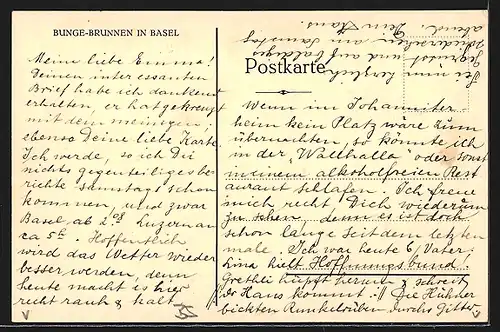 BUNGE-BRUNNEN IN BASEL
Meine liebe Emma!
Deinen interessanten
Brief habe ich dankend
erhalten, er hat gekreuzt
mit dem meinigen,
ebenso Deine liebe Karte.
Ich werde, so ich Dir
nichts gegenteiliges be-
richte samstag schon
kommen, und zwar
Basel ab 2 08 Luzern an
ca 5 t. Hoffentlich
wird das Wetter wieder
besser werden, denn
heute macht es hier
recht rauh & kalt.
Postkarte
Wenn im Johanniter-
heim kein Platz wäre zum
übernachten, so könnte ich
in der "Wallhalla" oder sonst
in einem alkoholfreien Rest
aurant schlafen. Ich freue
mich recht Dich wiederum
zu sehen, denn es ist doch
schon lange seit dem letzten
male. Ich war heute bei Vater.
Lina hielt Hoffnungsbund!
Grethli hüpft herum & schreit
"der Hans kommt"!! Die Hühner
bickten Runkelrüben durchs Gitter.
Sei nun herzlich
gegrüsst und auf baldiges
Wiedersehen am Samstag
abend. Dein Hans.